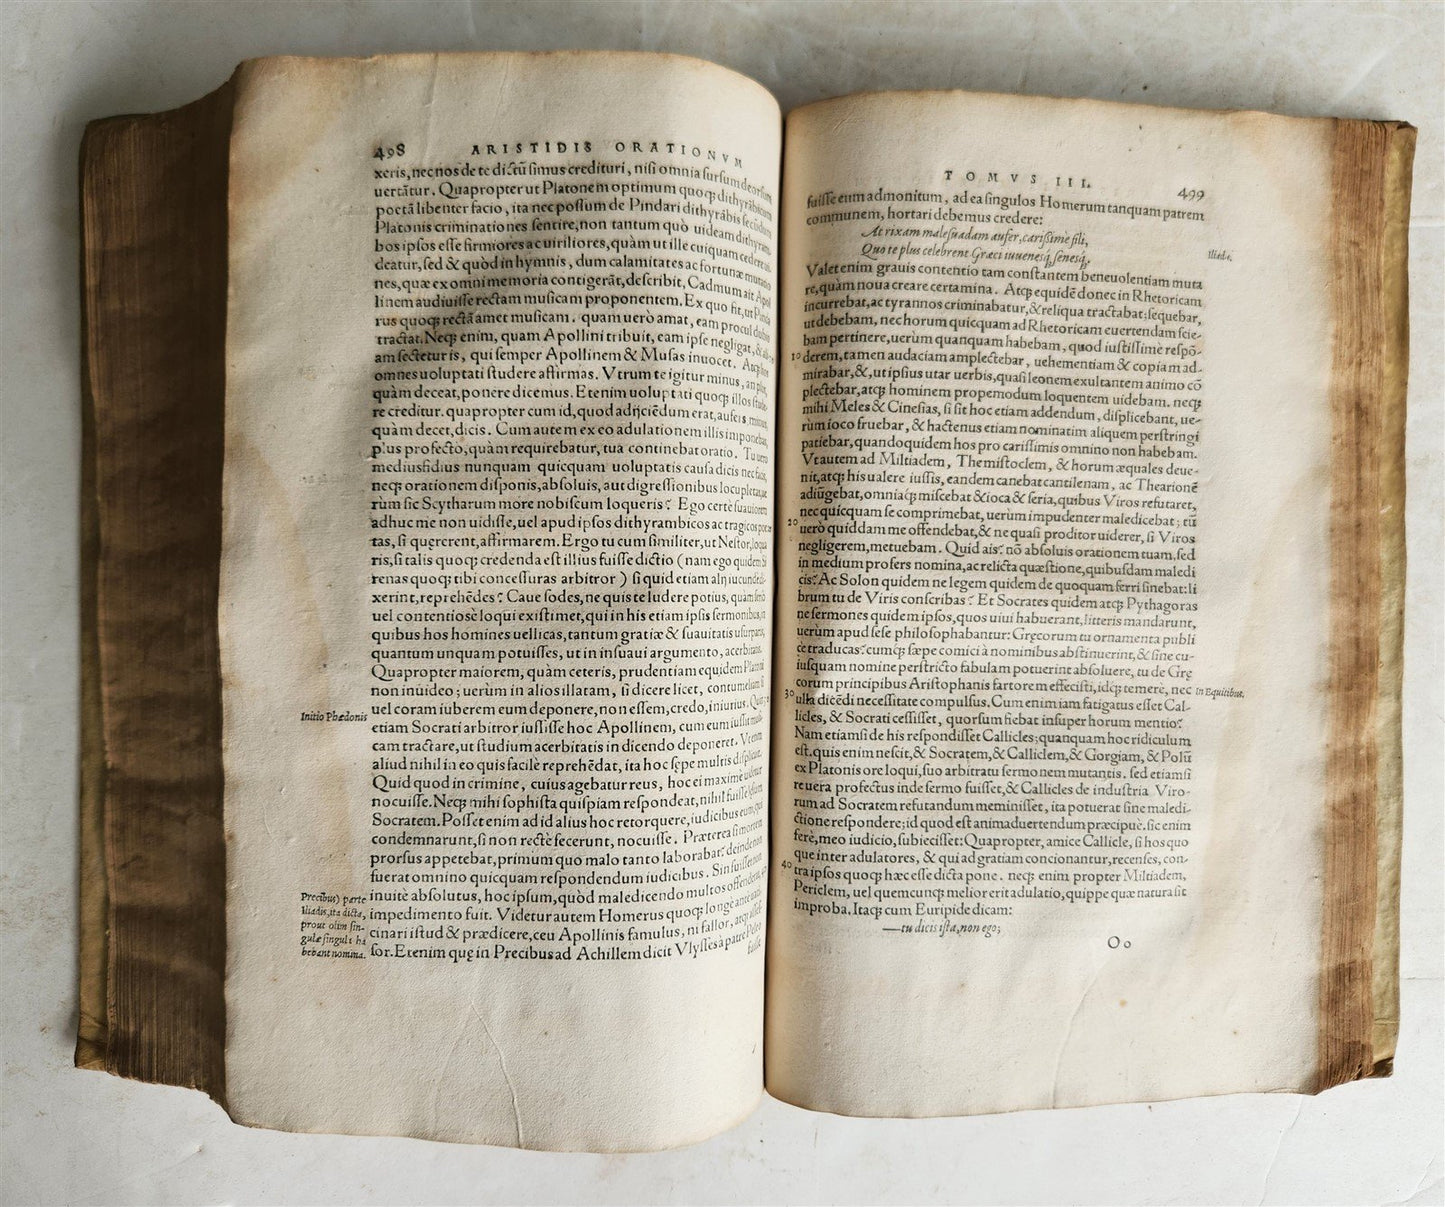 498 ARISTIDIS ORATIONVM
xeris, nec nos de te dictū simus credituri, nisi omnia sursum deorsum
uertātur. Quapropter ut Platonem optimum quoqꝫ dithyrābicum
poetā libenter facio, ita nec possum de Pindari dithyrābis secūdum
Platonis criminationes sentire, non tantum quò uideam dithyram
bos ipsos esse firmiores ac uiriliores, quàm ut ille cuiquam cedere ui-
deatur, sed & quòd in hymnis, dum calamitates ac fortunæ mutatio
nes, quæ ex omni memoria contigerāt, describit, Cadmum ait Apol
linem audiuisse rectam musicam proponentem. Ex quo fit, ut Pinda
rus quoqꝫ rectā amet musicam. quam uerò amat, eam procul dubio
tractat. Neqꝫ enim, quam Apollini tribuit, eam ipse negligat, &
am sectetur is, qui semper Apollinem & Musas inuocet. Atqꝫ
omnes uoluptati studere affirmas. Vtrum te igitur minus, an plus,
quàm deceat, ponere dicemus. Etenim uoluptati quoqꝫ illos stude-
re creditur. quapropter cum id, quod adijciēdum erat, aufers, minus,
quàm decet, dicis. Cum autem ex eo adulationem illis imponebas,
plus profecto, quàm requirebatur, tua continebat oratio. Tu uero
mediusfidius nunquam quicquam uoluptatis causa dicis nec facis,
neqꝫ orationem disponis, absoluis, aut digressionibus locupletas, ue
rùm sic Scytharum more nobiscum loqueris? Ego certè suauiorem
adhuc me non uidisse, uel apud ipsos dithyrambicos ac tragicos poe
tas, si quęrerent, affirmarem. Ergo tu cum similiter, ut Nestor, loqua
ris, si talis quoqꝫ credenda est illius fuisse dictio (nam ego quidem Si
renas quoqꝫ tibi concessuras arbitror) si quid etiam alij iucundè di-
xerint, reprehēdes? Caue sodes, ne quis te ludere potius, quàm seriò
uel contentiosè loqui existimet, qui in his etiam ipsis sermonibus, in
quibus hos homines uellicas, tantum gratiæ & suauitatis usurparis,
quantum unquam potuisses, ut in insuaui argumento, acerbitatis.
Quapropter maiorem, quàm ceteris, prudentiam equidem Platoni
non inuideo; uerùm in alios illatam, si dicere licet, contumeliam si
uel coram iuberem eum deponere, non essem, credo, iniurius. Quin
Initio Phædonis
etiam Socrati arbitror iussisse hoc Apollinem, cum eum iussit musi-
cam tractare, ut studium acerbitatis in dicendo deponeret. Vt enim
aliud nihil in eo quis facilè reprehēdat, ita hoc sępe multis displicuit.
Quid quod in crimine, cuius agebatur reus, hoc ei maximè uidetur
nocuisse. Neqꝫ mihi sophista quispiam respondeat, nihil fuisse ipsum
Socratem. Posset enim ad id alius hoc retorquere, iudicibus eum, qui
condemnarunt, si non rectè fecerunt, nocuisse. Præterea si mortem
prorsus appetebat, primum quo malo tanto laborabat? deinde non
fuerat omnino quicquam respondendum iudicibus. Sin fuisse non
Precibus) parte
Iliadis, ita dicta,
prout olim sin-
gulæ singuli ha
bebant nomina.
inuitè absolutus, hoc ipsum, quòd maledicendo multos offenderat, ei
impedimento fuit. Videtur autem Homerus quoqꝫ longè ante uati-
cinari istud & prædicere, ceu Apollinis famulus, ni fallor, atqꝫ asses-
sor. Etenim quę in Precibus ad Achillem dicit Vlysses à patre Peleo
fuisse
TOMVS III. 499
fuisse eum admonitum, ad ea singulos Homerum tanquam patrem
communem, hortari debemus credere:
At rixam malesuadam aufer, carißime fili,
Quo te plus celebrent Græci iuuenesqꝫ, senesqꝫ,
Iliad.
Valet enim grauis contentio tam constantem beneuolentiam muta
re, quàm noua creare certamina. Atqꝫ equidē donec in Rhetoricam
incurrebat, ac tyrannos criminabatur, & reliqua tractabat: sequebar,
ut debebam, nec horum quicquam ad Rhetoricam euertendam scie-
bam pertinere, uerùm quanquam habebam, quod iustissimè respō-
10 derem, tamen audaciam amplectebar, uehementiam & copiam ad-
mirabar, &, ut ipsius utar uerbis, quasi leonem exultantem animo cō
plectebar, atqꝫ hominem propemodum loquentem uidebam. neqꝫ
mihi Meles & Cinesias, si sit hoc etiam addendum, displicebant, ue-
rùm ioco fruebar, & hactenus etiam nominatim aliquem perstringi
patiebar, quandoquidem hos pro carissimis omnino non habebam.
Vt autem ad Miltiadem, Themistoclem, & horum æquales deue-
nit, atqꝫ his ualere iussis, eandem canebat cantilenam, ac Thearionē
adiūgebat, omniaqꝫ miscebat & ioca & seria, quibus Viros refutaret,
nec quicquam se comprimebat, uerùm impudenter maledicebat; tū
20 uerò quiddam me offendebat, & ne quasi proditor uiderer, si Viros
negligerem, metuebam. Quid ais? nō absoluis orationem tuam, sed
in medium profers nomina, ac relicta quæstione, quibusdam maledi
cis? Ac Solon quidem ne legem quidem de quoquam ferri sinebat: li
brum tu de Viris conscribas? Et Socrates quidem atqꝫ Pythagoras
ne sermones quidem ipsos, quos uiui habuerant, litteris mandarunt,
uerùm apud sese philosophabantur: Gręcorum tu ornamenta publi
cè traducas? cumqꝫ sæpe comici à nominibus abstinuerint, & sine cu-
iusquam nomine perstricto fabulam potuerint absoluere, tu de Gre
corum principibus Aristophanis fartorem effecisti, idqꝫ temerè, nec
In Equitibus.
30 ulla dicēdi necessitate compulsus. Cum enim iam fatigatus esset Cal-
licles, & Socrati cessisset, quorsum fiebat insuper horum mentio?
Nam etiamsi de his respondisset Callicles; quanquam hoc ridiculum
est. quis enim nescit, & Socratem, & Calliclem, & Gorgiam, & Polū
ex Platonis ore loqui, suo arbitratu sermonem mutantis. sed etiamsi
re uera profectus inde sermo fuisset, & Callicles de industria Viro-
rum ad Socratem refutandum meminisset, ita potuerat sine maledi-
ctione respondere; id quod est animaduertendum præcipuè. sic enim
ferè, meo iudicio, subiecisset: Quapropter, amice Callicle, si hos quo
que inter adulatores, & qui ad gratiam concionantur, recenses, con-
40 tra ipsos quoqꝫ hæc esse dicta pone. neqꝫ enim propter Miltiadem,
Periclem, uel quemcunqꝫ melior erit adulatio, quippe quæ natura sit
improba. Itaqꝫ cum Euripide dicam:
—tu dicis ista, non ego;
Oo